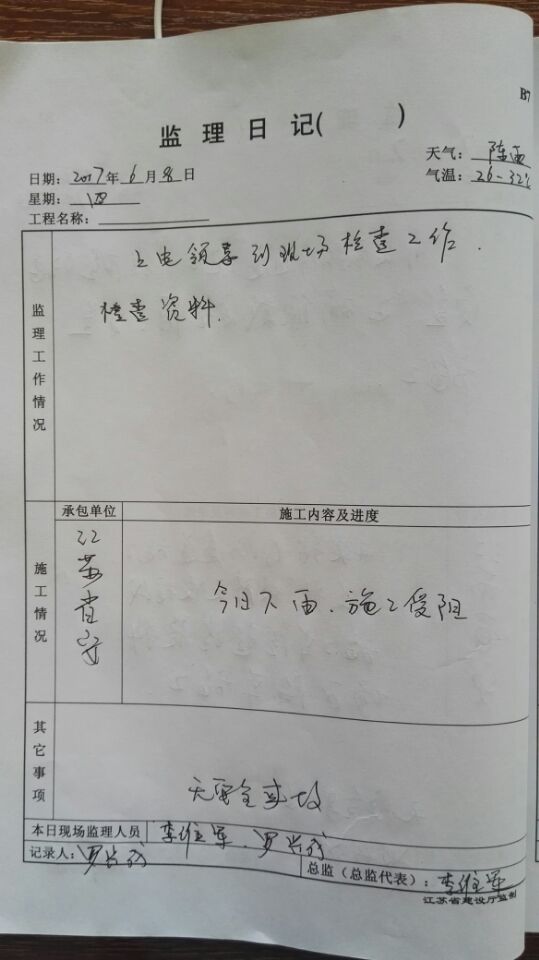 B7
监理日记( )
天气：阵雨
日期：2017年6月8日
气温：26-32℃
星期：四
工程名称：
监理工作情况
上电领导到现场检查工作.
检查资料.
施工情况
承包单位
施工内容及进度
江苏省
今日下雨、施工受阻
其它事项
无安全事故
本日现场监理人员
李维军、罗兴成
记录人：罗兴成
总监（总监代表）：李维军
江苏省建设厅监制